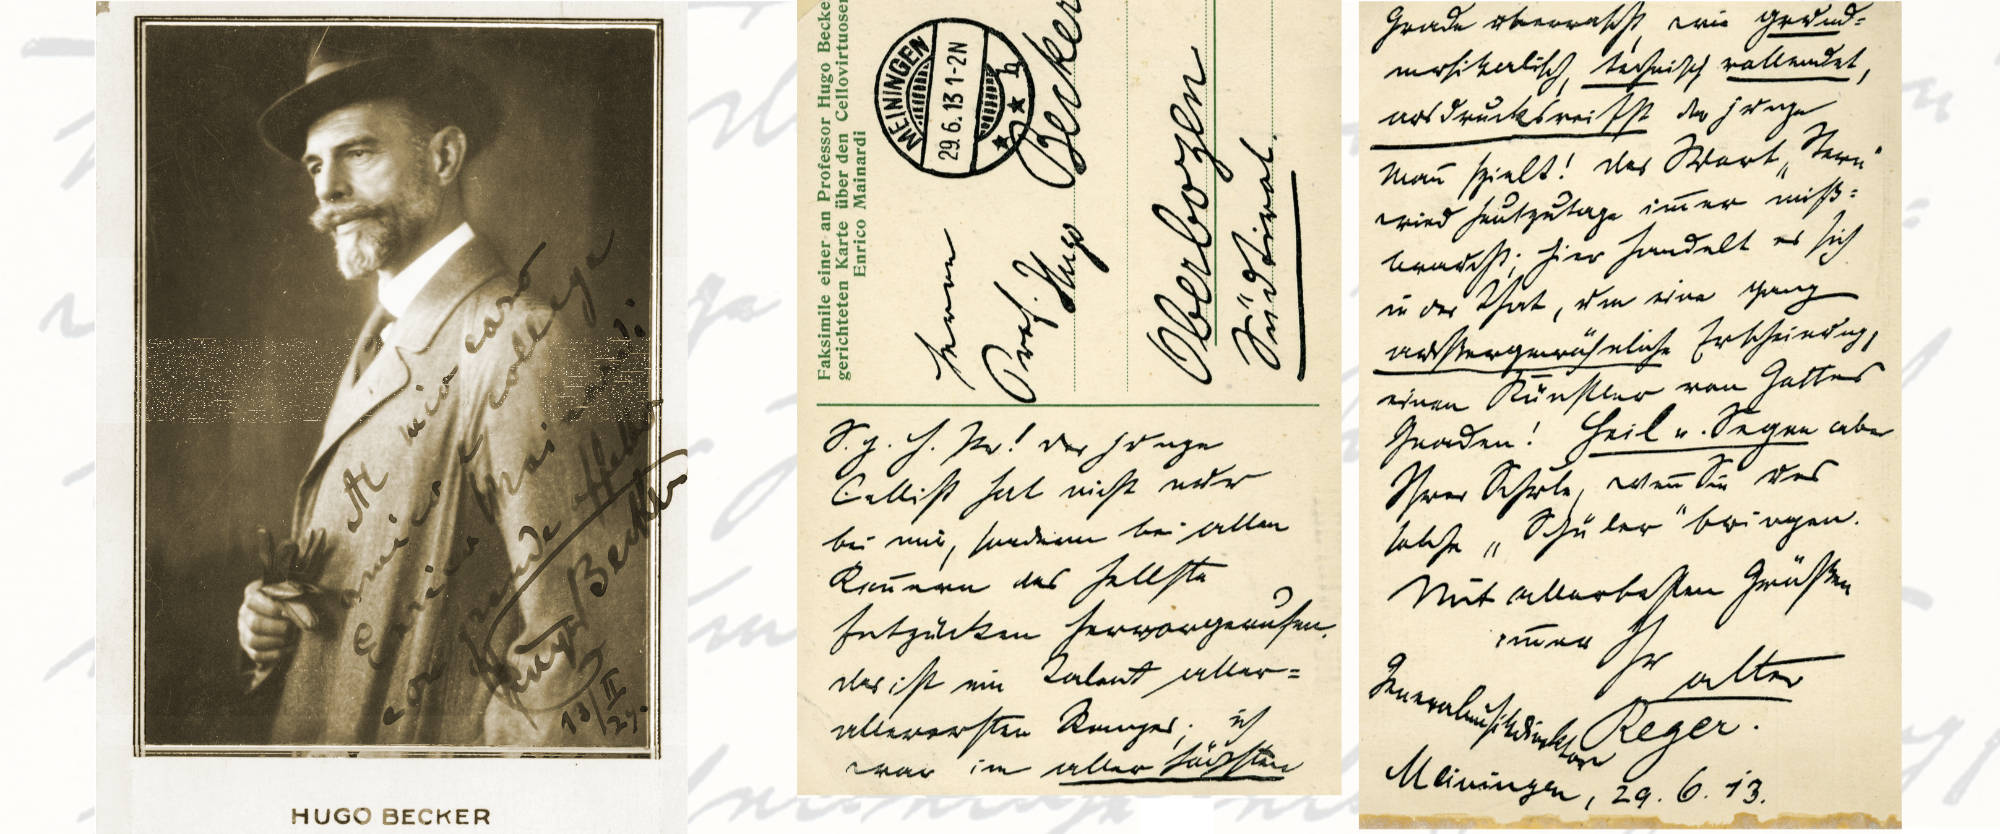 Al mio caro
amico e collega
Enrico Mainardi
con grande affetto
Hugo Becker
13/II 24.
HUGO BECKER
Faksimile einer an Professor Hugo Becker
gerichteten Karte über den Cellovirtuosen
Enrico Mainardi
MEININGEN
29.6.13 1-2N
* b *
Herrn
Prof. Hugo Becker
Oberbozen
Südtirol.
S. g. H. Pr! Der junge
Cellist hat nicht nur
bei mir, sondern bei allen
Kennern das hellste
Entzücken hervorgerufen.
das ist ein Talent aller=
allerersten Ranges; ich
war im aller höchsten
Grade überrascht, wie grund=
musikalisch, technisch vollendet,
ausdrucksreifst der junge
Mann spielt! das Wort „Stern"
wird heutzutage immer miß=
braucht; hier handelt es sich
in der That, um eine ganz
außergewöhnliche Erscheinung,
einen Künstler von Gottes
Gnaden! Heil u. Segen aber
Ihrer Schule, wenn Sie uns
solche „Schüler" bringen.
Mit allerbesten Grüßen
immer Ihr alter
Reger.
Generalmusikdirektor
Meiningen, 29. 6. 13.